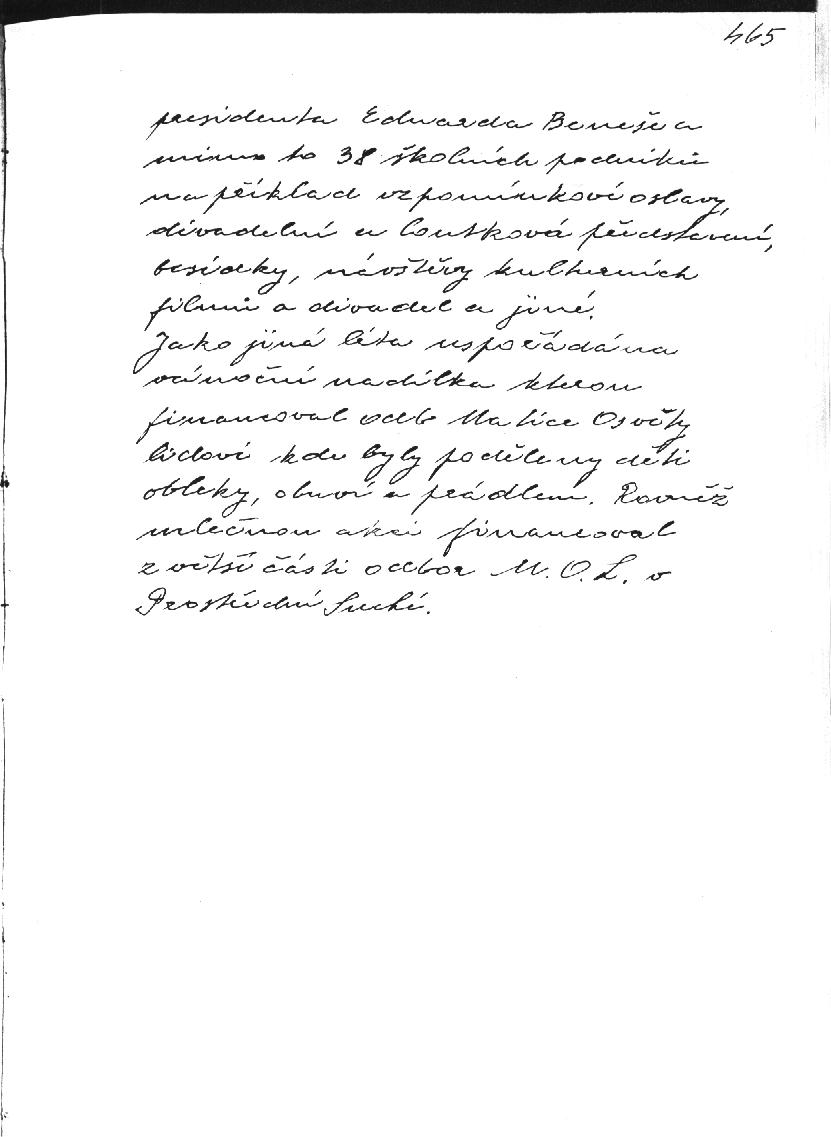 465
presidenta Eduarda Beneše a
mimo to 38 školních podniků
na příklad vzpomínkové oslavy,
divadelní a loutková představení,
besídky, návštěvy kulturních
filmů a divadel a jiné.
Jako jiná léta uspořádána
vánoční nadílka kterou
financoval odb Matice Osvěty
lidové kde byly poděleny děti
obleky, obuví a prádlem. Rovněž
mléčnou akci financoval
z větší části odbor M. O. L. v
Prostřední Suché.